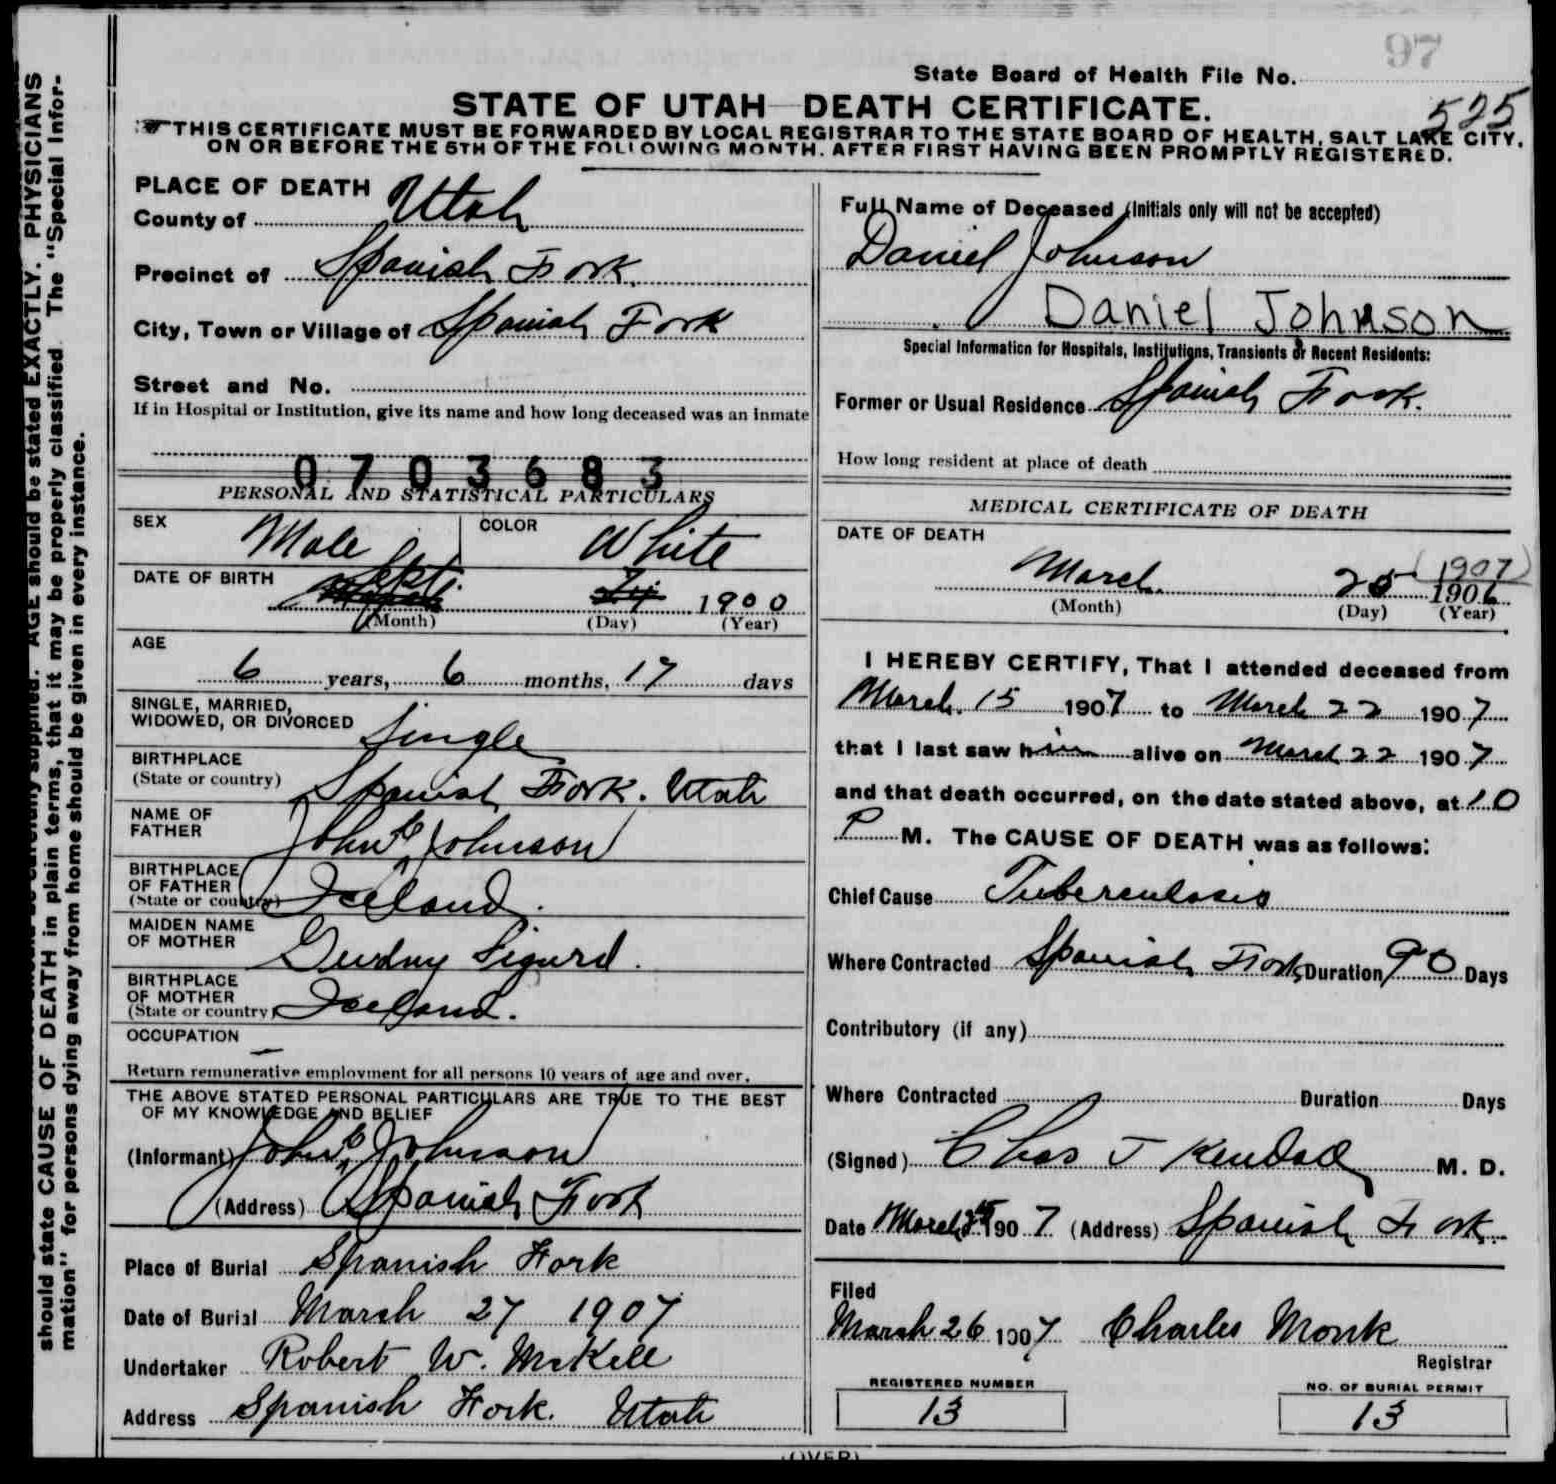 97
State Board of Health File No.
525
STATE OF UTAH—DEATH CERTIFICATE.
THIS CERTIFICATE MUST BE FORWARDED BY LOCAL REGISTRAR TO THE STATE BOARD OF HEALTH, SALT LAKE CITY,
ON OR BEFORE THE 5TH OF THE FOLLOWING MONTH. AFTER FIRST HAVING BEEN PROMPTLY REGISTERED.
AGE should be stated EXACTLY. PHYSICIANS
should state CAUSE OF DEATH in plain terms, that it may be properly classified. The "Special Infor-
mation" for persons dying away from home should be given in every instance.
PLACE OF DEATH
County of Utah
Precinct of Spanish Fork.
City, Town or Village of Spanish Fork
Street and No.
If in Hospital or Institution, give its name and how long deceased was an inmate
0703683
PERSONAL AND STATISTICAL PARTICULARS
SEX Male COLOR White
DATE OF BIRTH Sept. 1900
(Month) (Day) (Year)
AGE
6 years, 6 months, 17 days
SINGLE, MARRIED,
WIDOWED, OR DIVORCED Single
BIRTHPLACE
(State or country) Spanish Fork. Utah
NAME OF
FATHER John Johnson
BIRTHPLACE
OF FATHER
(State or country) Iceland.
MAIDEN NAME
OF MOTHER Gudny Sigurd.
BIRTHPLACE
OF MOTHER
(State or country) Iceland.
OCCUPATION —
Return remunerative employment for all persons 10 years of age and over.
THE ABOVE STATED PERSONAL PARTICULARS ARE TRUE TO THE BEST
OF MY KNOWLEDGE AND BELIEF
(Informant) John Johnson
(Address) Spanish Fork
Place of Burial Spanish Fork
Date of Burial March 27 1907
Undertaker Robert W. McKell
Address Spanish Fork. Utah
Full Name of Deceased (Initials only will not be accepted)
Daniel Johnson
Daniel Johnson
Special Information for Hospitals, Institutions, Transients or Recent Residents:
Former or Usual Residence Spanish Fork.
How long resident at place of death
MEDICAL CERTIFICATE OF DEATH
DATE OF DEATH
(1907)
March. 25 1906
(Month) (Day) (Year)
I HEREBY CERTIFY, That I attended deceased from
March. 15 1907 to March 22 1907
that I last saw him alive on March 22 1907
and that death occurred, on the date stated above, at 10
P M. The CAUSE OF DEATH was as follows:
Chief Cause Tuberculosis
Where Contracted Spanish Fork Duration 90 Days
Contributory (if any)
Where Contracted Duration Days
(Signed) Chas J Kendall M. D.
Date March 1907 (Address) Spanish Fork.
Filed
March 26 1907 Charles Monk
Registrar
REGISTERED NUMBER
13
NO. OF BURIAL PERMIT
13
(OVER)